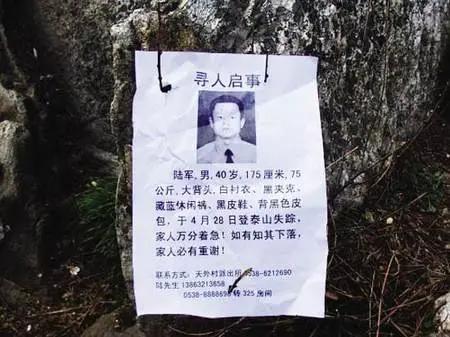 寻人启事
陆军,男,40岁,175厘米,75
公斤,大背头,白衬衣、黑夹克、
藏蓝休闲裤、黑皮鞋、背黑色皮
包,于4月28日登泰山失踪,
家人万分着急!如有知其下落,
家人必有重谢!
联系方式:天外村派出所 0538-6212690
陆先生 13863213658
0538-8888698 转 325 房间